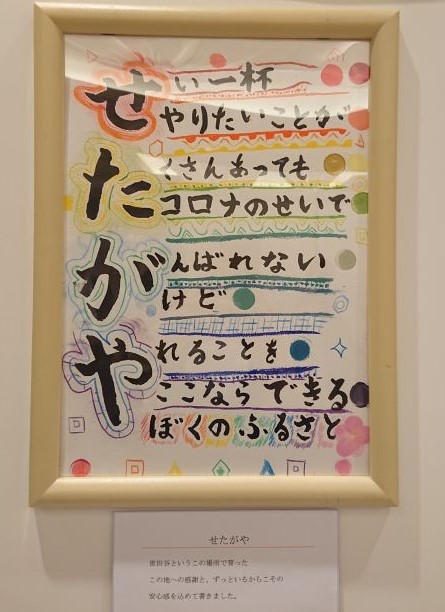 せい一杯
やりたいことが
たくさんあっても
コロナのせいで
がんばれない
けど
やれることを
ここならできる
ぼくのふるさと
せたがや
世田谷というこの場所で育った
この地への感謝と、ずっといるからこその
安心感を込めて書きました。